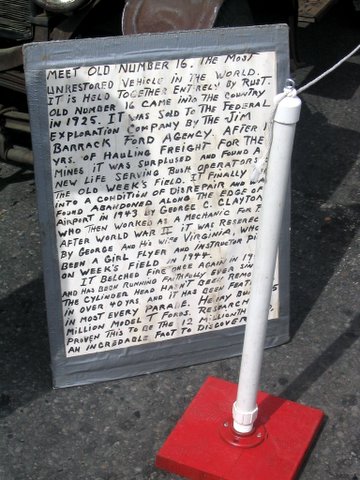 MEET OLD NUMBER 16. THE MOST
UNRESTORED VEHICLE IN THE WORLD.
IT IS HELD TOGETHER ENTIRELY BY RUST.
OLD NUMBER 16 CAME INTO THE COUNTRY
IN 1925. IT WAS SOLD TO THE FEDERAL
EXPLORATION COMPANY BY THE JIM
BARRACK FORD AGENCY. AFTER
YRS. OF HAULING FREIGHT FOR THE
MINES IT WAS SURPLUSED AND FOUND A
NEW LIFE SERVING BUSH OPERATORS
THE OLD WEEK'S FIELD. IT FINALLY
INTO A CONDITION OF DISREPAIR AND
FOUND ABANDONED ALONG THE EDGE OF
AIRPORT IN 1943 BY GEORGE C. CLAYTO
WHO THEN WORKED AS A MECHANIC FOR
AFTER WORLD WAR II IT WAS
BY GEORGE AND HIS WIFE VIRGINIA, WHO
BEEN A GIRL FLYER AND INSTRUCTOR
ON WEEK'S FIELD IN 1944.
IT BELCHED FIRE ONCE AGAIN IN
AND HAS BEEN RUNNING FAITHFULLY EVER
THE CYLINDER HEAD HASN'T BEEN
IN OVER 40 YRS. AND IT HAS BEEN
IN MOST EVERY PARADE. HENRY
MILLION MODEL T FORDS. RESEARCH
PROVEN THIS TO BE THE 12 MILLIONTH
AN INCREDABLE FACT TO DISCOVER